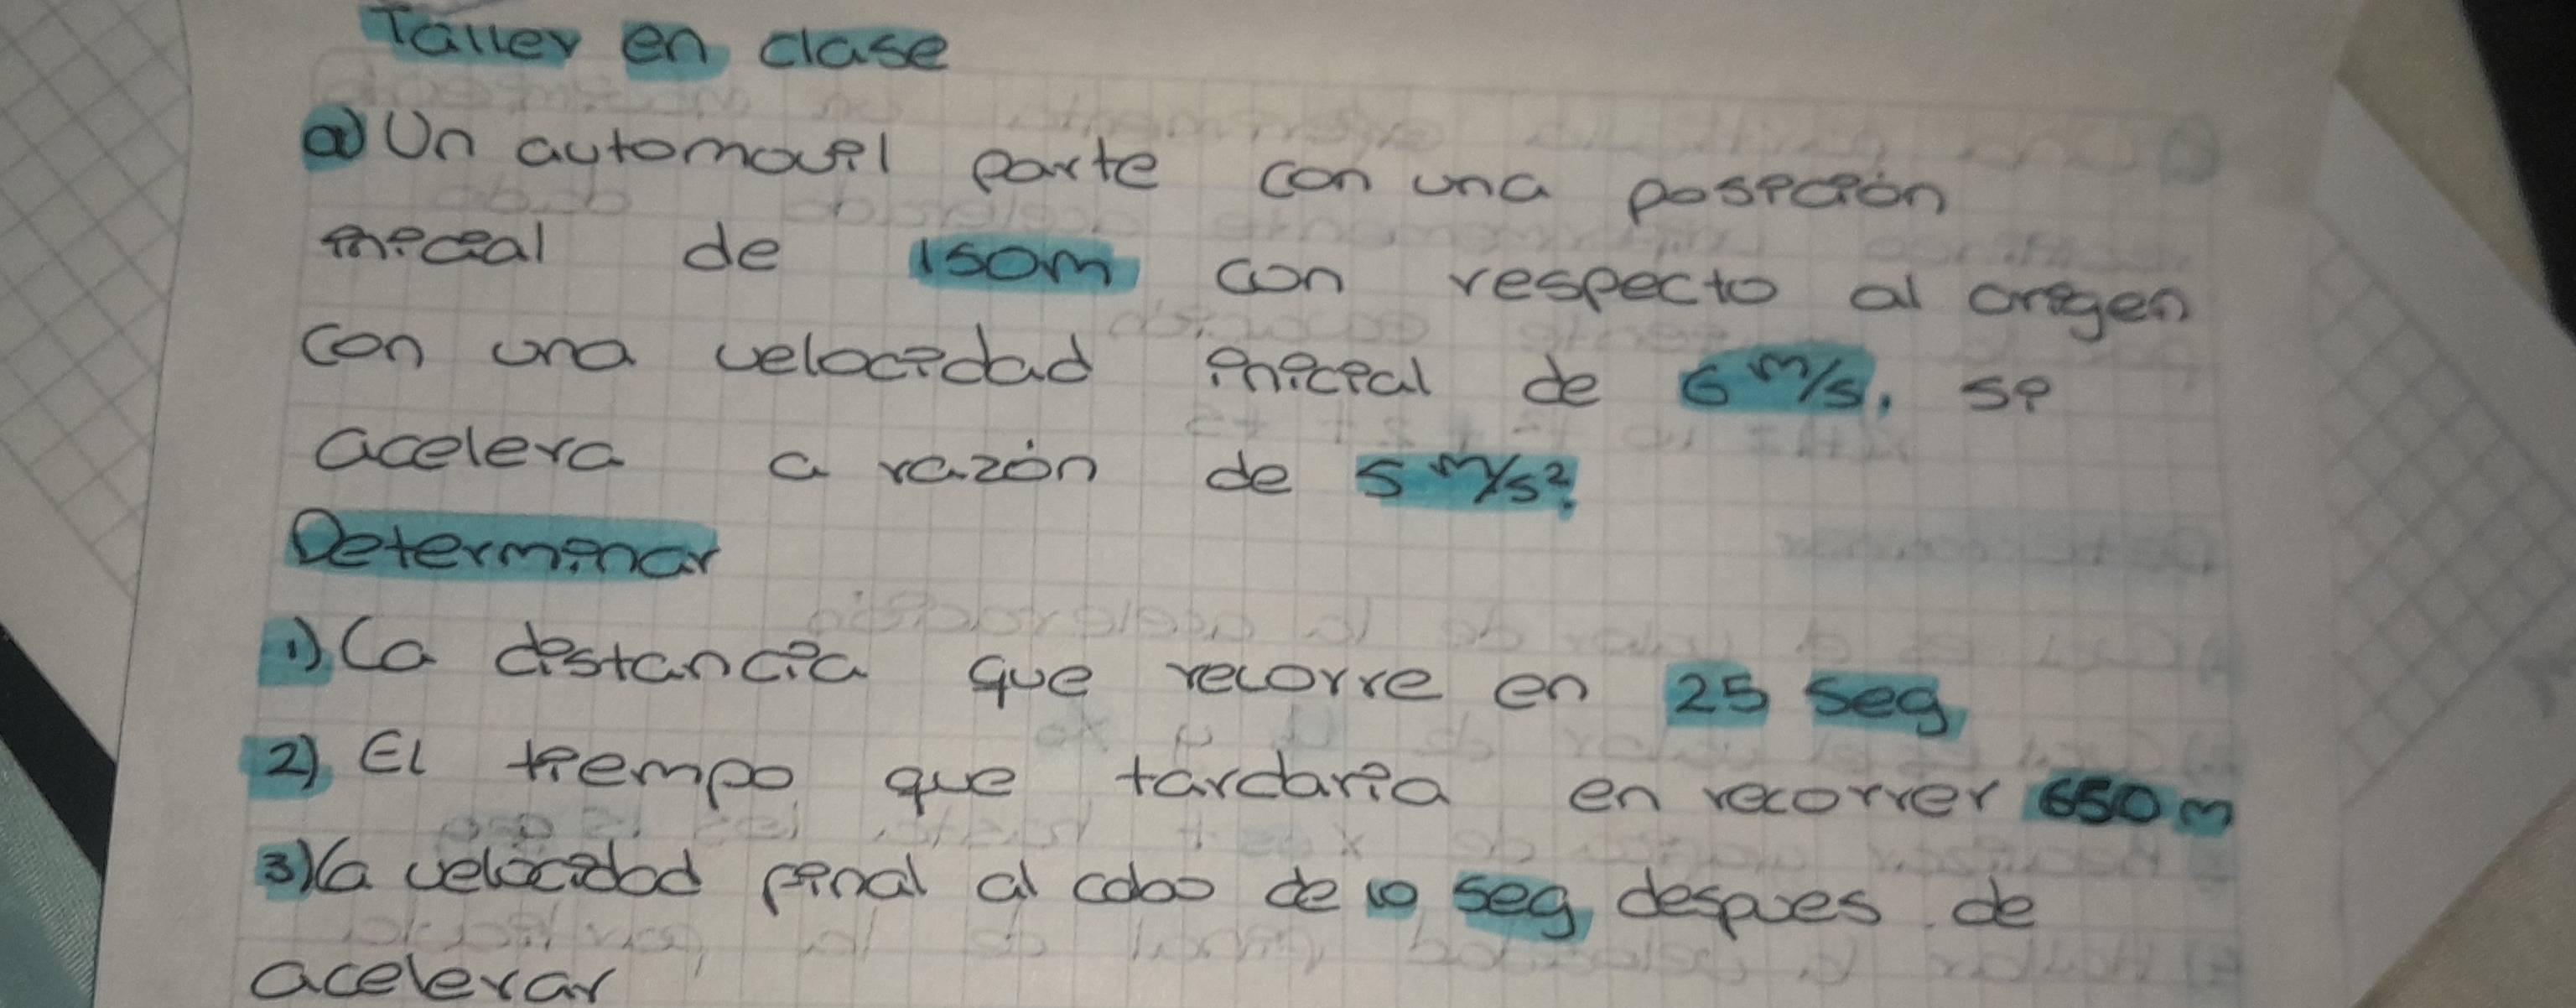 Taller en clase
a) Un automovil parte con una posición
inicial de 150m con respecto al origen
con una velocidad inicial de 6 m/s, si
acelera a razón de 5 m/s².
Determinar
1) La distancia que recorre en 25 seg
2) El tiempo que tardaria en recorrer 650 m
3) La velocidad final al cabo de 10 seg despues de
acelerar